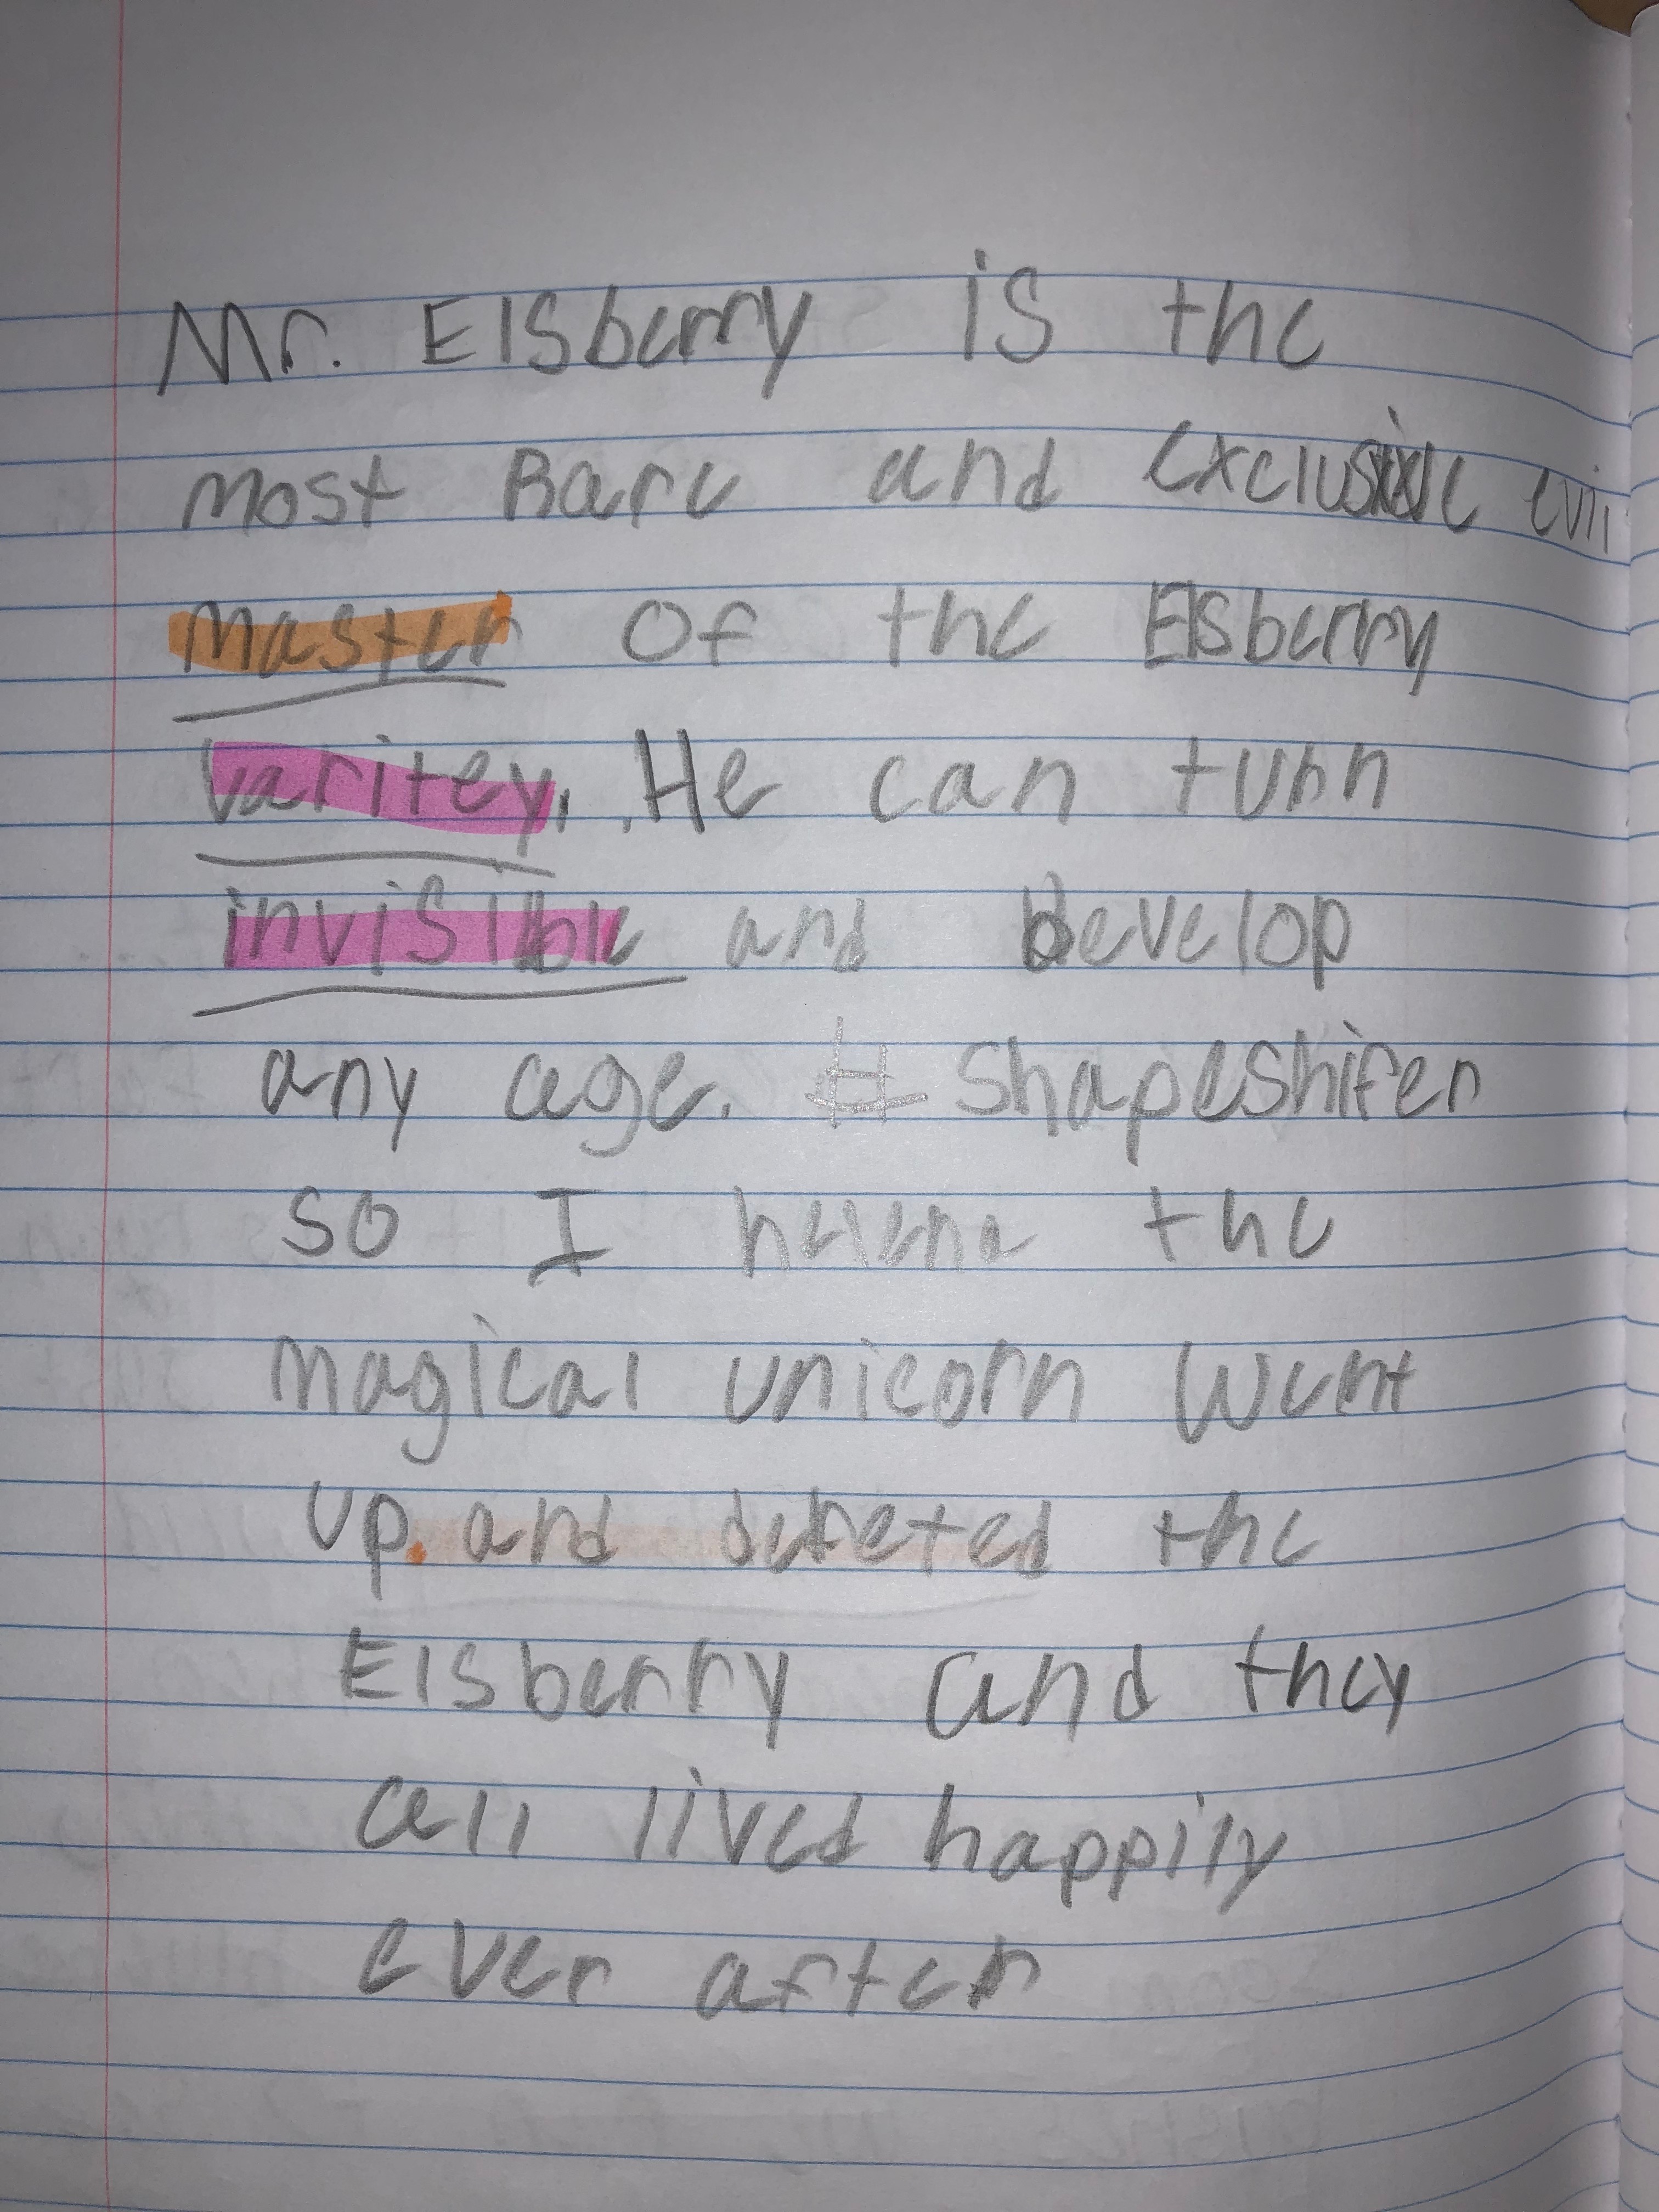 Mr. Elsberry is the
most Rare and exclusive evil
master of the Elsberry
varitey. He can turn
invisible and Develop
any age. # shapeshifer
so I helena the
magical unicorn went
up. and defeted the
Elsberry and they
all lived happily
ever after